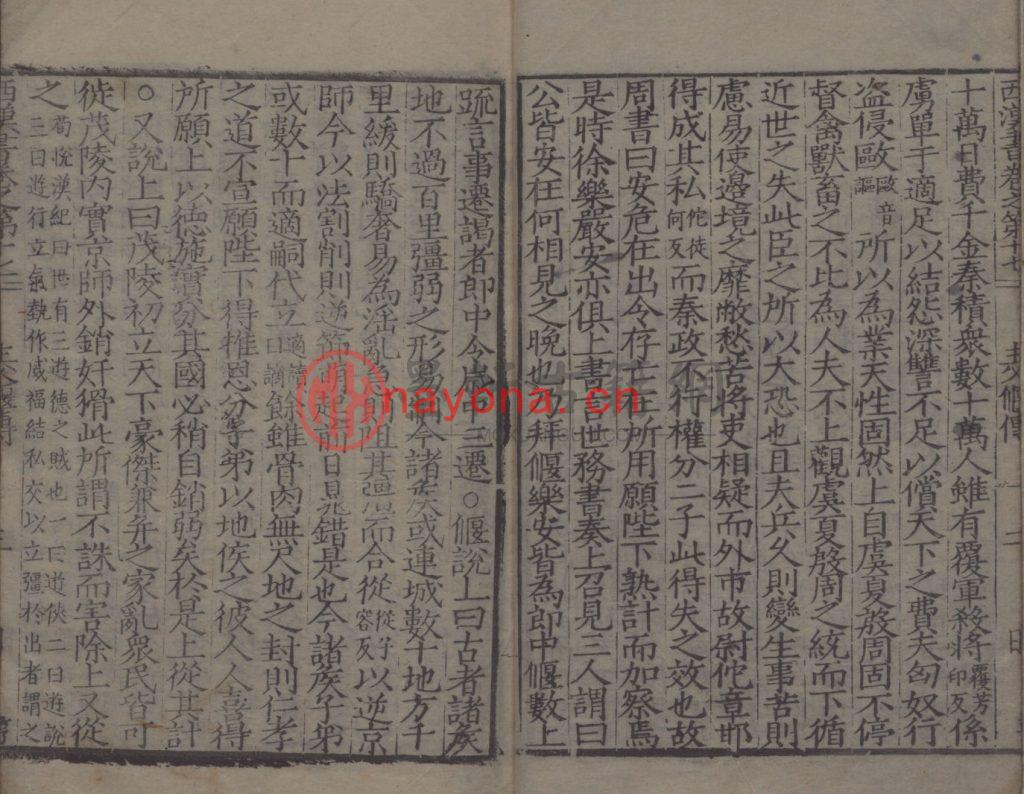 十萬日費千金秦積衆數十萬人雖有覆軍殺將覆芳印反係
虜單于適足以結怨深讐不足以償天下之費夫匈奴行
盗侵敺音敺所以為業天性固然上自虞夏殷周固不
督禽獸畜之不比為人夫不上觀虞夏殷周之統而下循
近世之失此臣之所以大恐也且夫兵久則變生事苦則
慮易使邊境之靡敝愁苦將吏相疑而外市故尉佗章邯
得成其私佗徒何反而秦政不行權分二子此得失之效也故
周書曰安危在出令存亡在所用願陛下熟計而加察焉
是時徐樂嚴安亦俱上書言世務書奏上召見三人謂曰
公皆安在何相見之晚也乃拜偃樂安皆為郎中偃數上
疏言事遷謁者郎中令歲中三遷○偃說上曰古者諸侯
地不過百里彊弱之形易制今諸侯或連城數十地方千
里緩則驕奢易為淫亂急則阻其彊而合從從子容反以逆京
師今以法割削則逆節萌起前日晁錯是也今諸侯子弟
或數十而適嗣代立適讀嫡餘雖骨肉無尺地之封則仁孝
之道不宣願陛下得推恩分子弟以地侯之彼人人喜得
所願上以德施實分其國必稍自銷弱矣於是上從其計
○又說上曰茂陵初立天下豪傑兼并之家亂衆民皆可
徙茂陵内實京師外銷奸猾此所謂不誅而害除上又從
之荀悅漢紀曰世有三遊德之賊也一曰遊俠二曰遊說三曰遊行立氣埶作威福結私交以立彊於世者謂之
nayona.cn